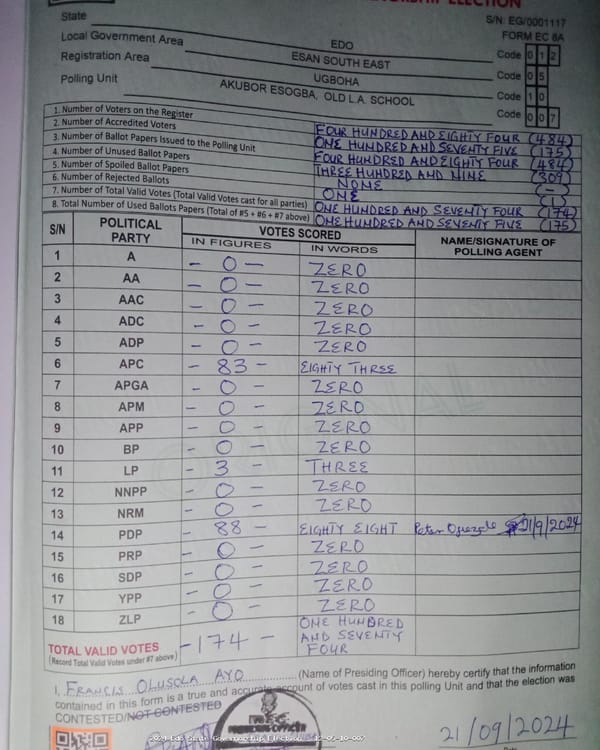 ELECTION
S/N: EG/0001117
FORM EC 8A
State EDO Code 0 1 2
Local Government Area ESAN SOUTH EAST Code 0 5
Registration Area UGBOHA Code 1 0
Polling Unit AKUBOR ESOGBA, OLD L.A. SCHOOL Code 0 0 7
1. Number of Voters on the Register FOUR HUNDRED AND EIGHTY FOUR (484)
2. Number of Accredited Voters ONE HUNDRED AND SEVENTY FIVE (175)
3. Number of Ballot Papers Issued to the Polling Unit FOUR HUNDRED AND EIGHTY FOUR (484)
4. Number of Unused Ballot Papers THREE HUNDRED AND NINE (309)
5. Number of Spoiled Ballot Papers NONE (-)
6. Number of Rejected Ballots ONE (1)
7. Number of Total Valid Votes (Total Valid Votes cast for all parties) ONE HUNDRED AND SEVENTY FOUR (174)
8. Total Number of Used Ballots Papers (Total of #5 + #6 + #7 above) ONE HUNDRED AND SEVENTY FIVE (175)
S/N POLITICAL PARTY VOTES SCORED NAME/SIGNATURE OF POLLING AGENT
IN FIGURES IN WORDS
1 A - 0 - ZERO
2 AA - 0 - ZERO
3 AAC - 0 - ZERO
4 ADC - 0 - ZERO
5 ADP - 0 - ZERO
6 APC - 83 - EIGHTY THREE
7 APGA - 0 - ZERO
8 APM - 0 - ZERO
9 APP - 0 - ZERO
10 BP - 0 - ZERO
11 LP - 3 - THREE
12 NNPP - 0 - ZERO
13 NRM - 0 - ZERO
14 PDP - 88 - EIGHTY EIGHT Peter 21/9/2024
15 PRP - 0 - ZERO
16 SDP - 0 - ZERO
17 YPP - 0 - ZERO
18 ZLP - 0 - ZERO
TOTAL VALID VOTES - 174 - ONE HUNDRED AND SEVENTY FOUR
(Record Total Valid Votes under #7 above)
I, FRANCIS OLUSOLA AYO (Name of Presiding Officer) hereby certify that the information
contained in this form is a true and accurate account of votes cast in this polling unit and that the election was
CONTESTED/NOT CONTESTED
21/09/2024